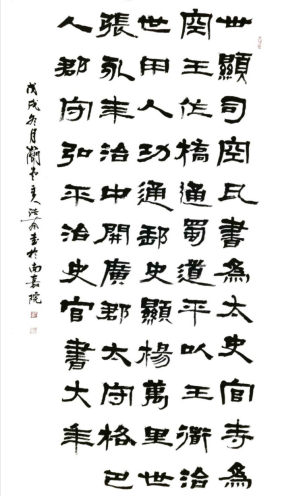 世顯司空氏書為太史官寺為
空王作橋通蜀道平以王治
世用人功通郵史顯楊萬里世
張永年治中開廣郡太守格巴
人郡守弘平治史官書大年
戊戌冬月書於南院